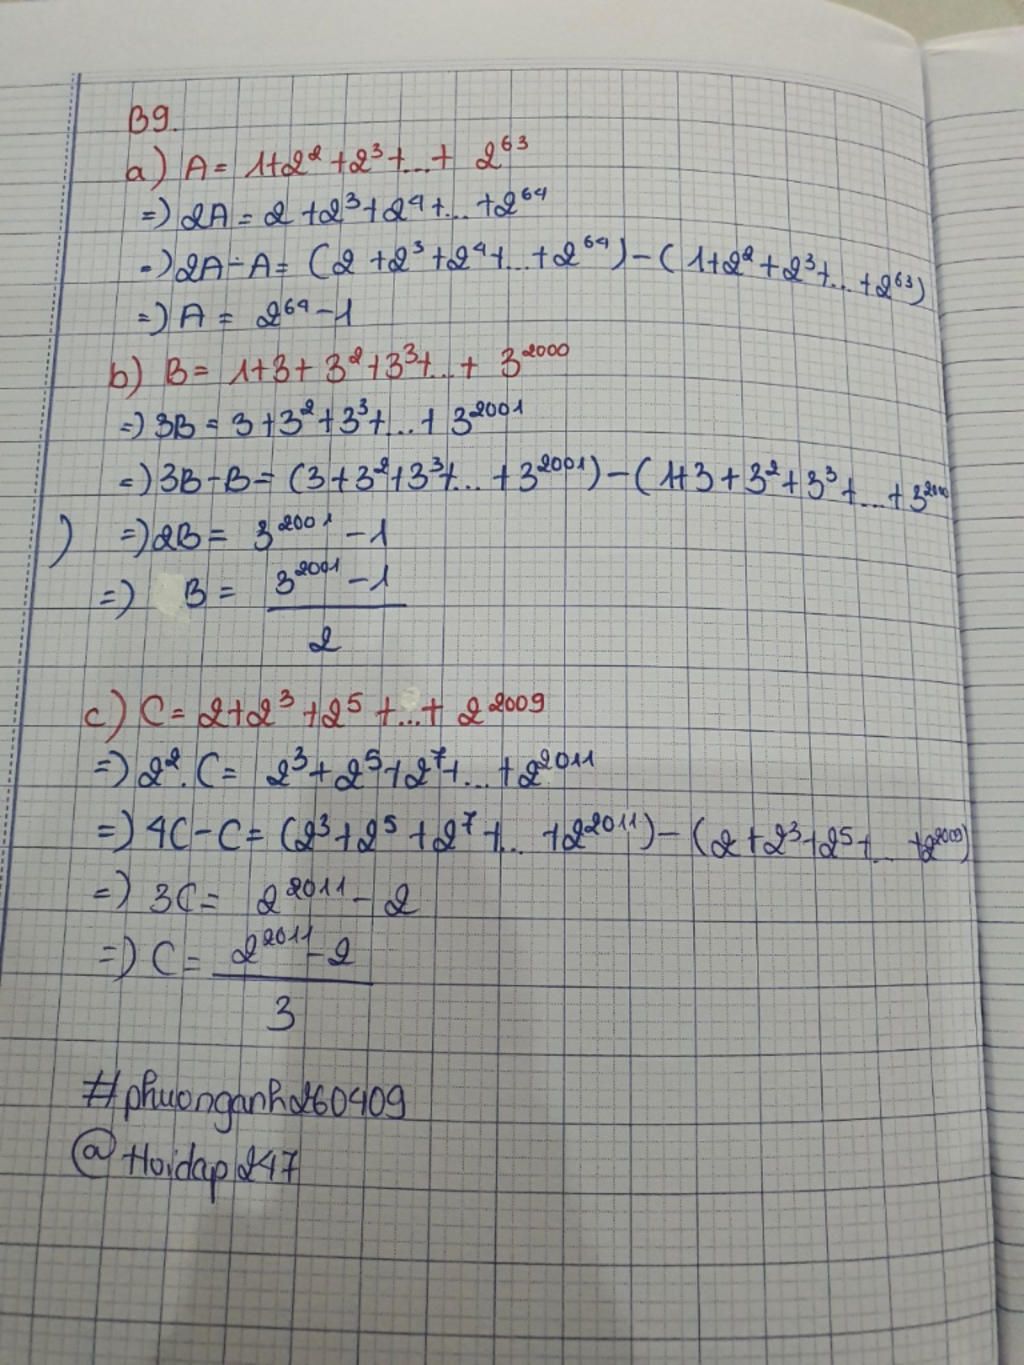 B9.
a) A = 1+2² +2³ +...+ 2⁶³
=) 2A = 2 +2³+2⁴+... +2⁶⁴
=) 2A - A = (2 +2³+2⁴+...+2⁶⁴) - (1+2²+2³+... +2⁶³)
=) A = 2⁶⁴ - 1
b) B = 1+3+ 3² +3³+...+ 3²⁰⁰⁰
=) 3B = 3 +3²+3³+...+ 3²⁰⁰¹
=) 3B - B = (3+3²+3³+... +3²⁰⁰¹) - (1+3 +3²+3³+...+3²⁰⁰⁰
) =) 2B = 3²⁰⁰¹ - 1
=) B = 3²⁰⁰¹ - 1
2
c) C = 2+2³ +2⁵ +...+ 2²⁰⁰⁹
=) 2².C = 2³+2⁵+2⁷+... +2²⁰¹¹
=) 4C - C = (2³+2⁵ +2⁷ +... +2²⁰¹¹) - (2 +2³+2⁵+... +2²⁰⁰⁹)
=) 3C = 2²⁰¹¹ - 2
=) C = 2²⁰¹¹ - 2
3
#phuonganh260409
@Hoidap247